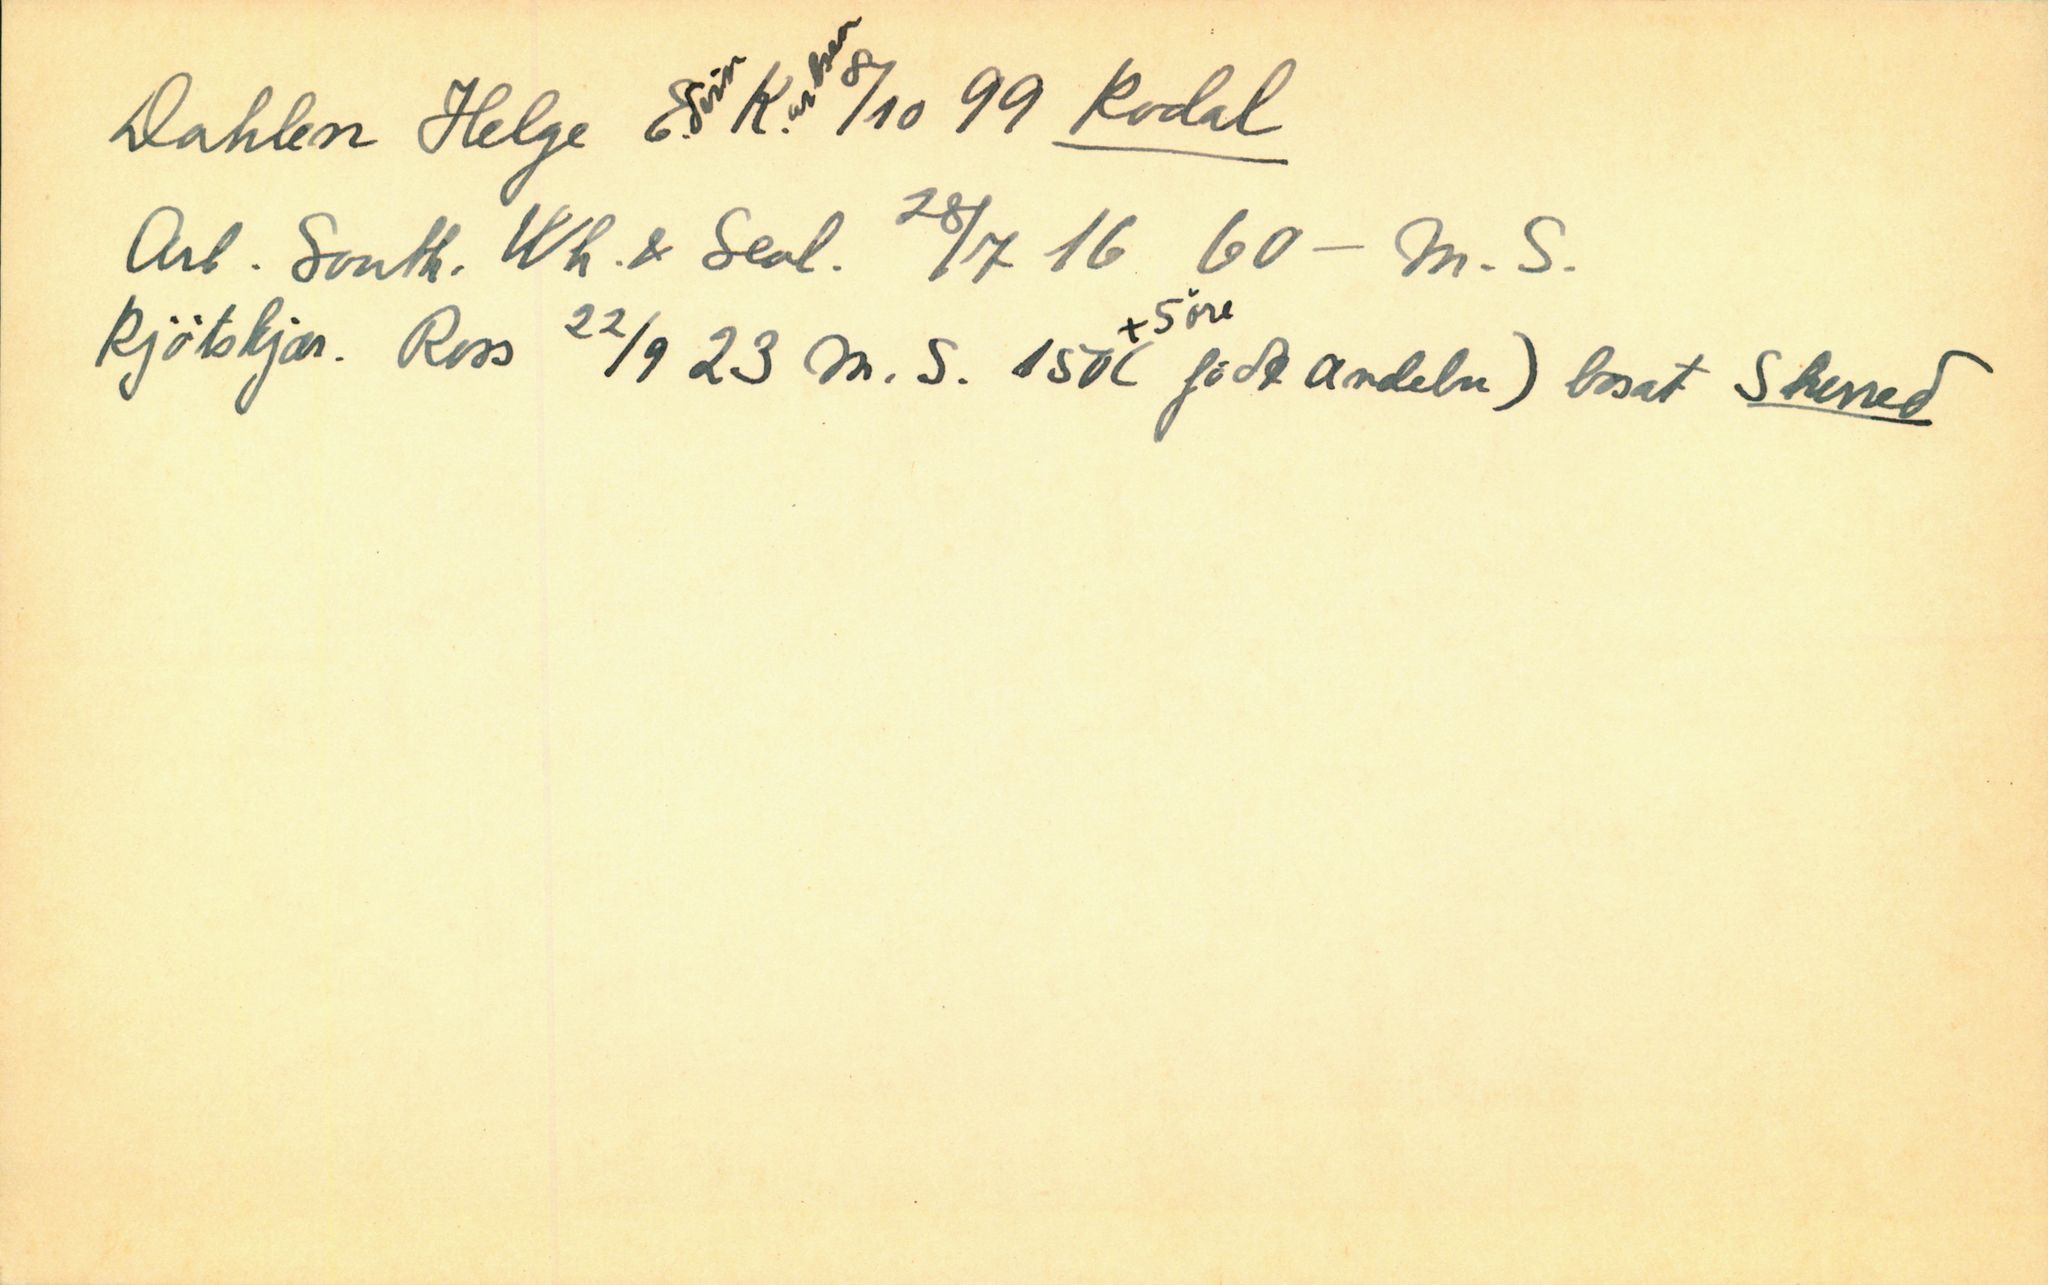 Dahlen Helge E. K. 8/10 99 Kodal
Arb. South. Wh. & Seal. 28/7 16 60 - M. S.
Kjötskjær. Ross 22/9 23 M. S. 150 + 5 öre ( födt Andebu) bosat Skerred